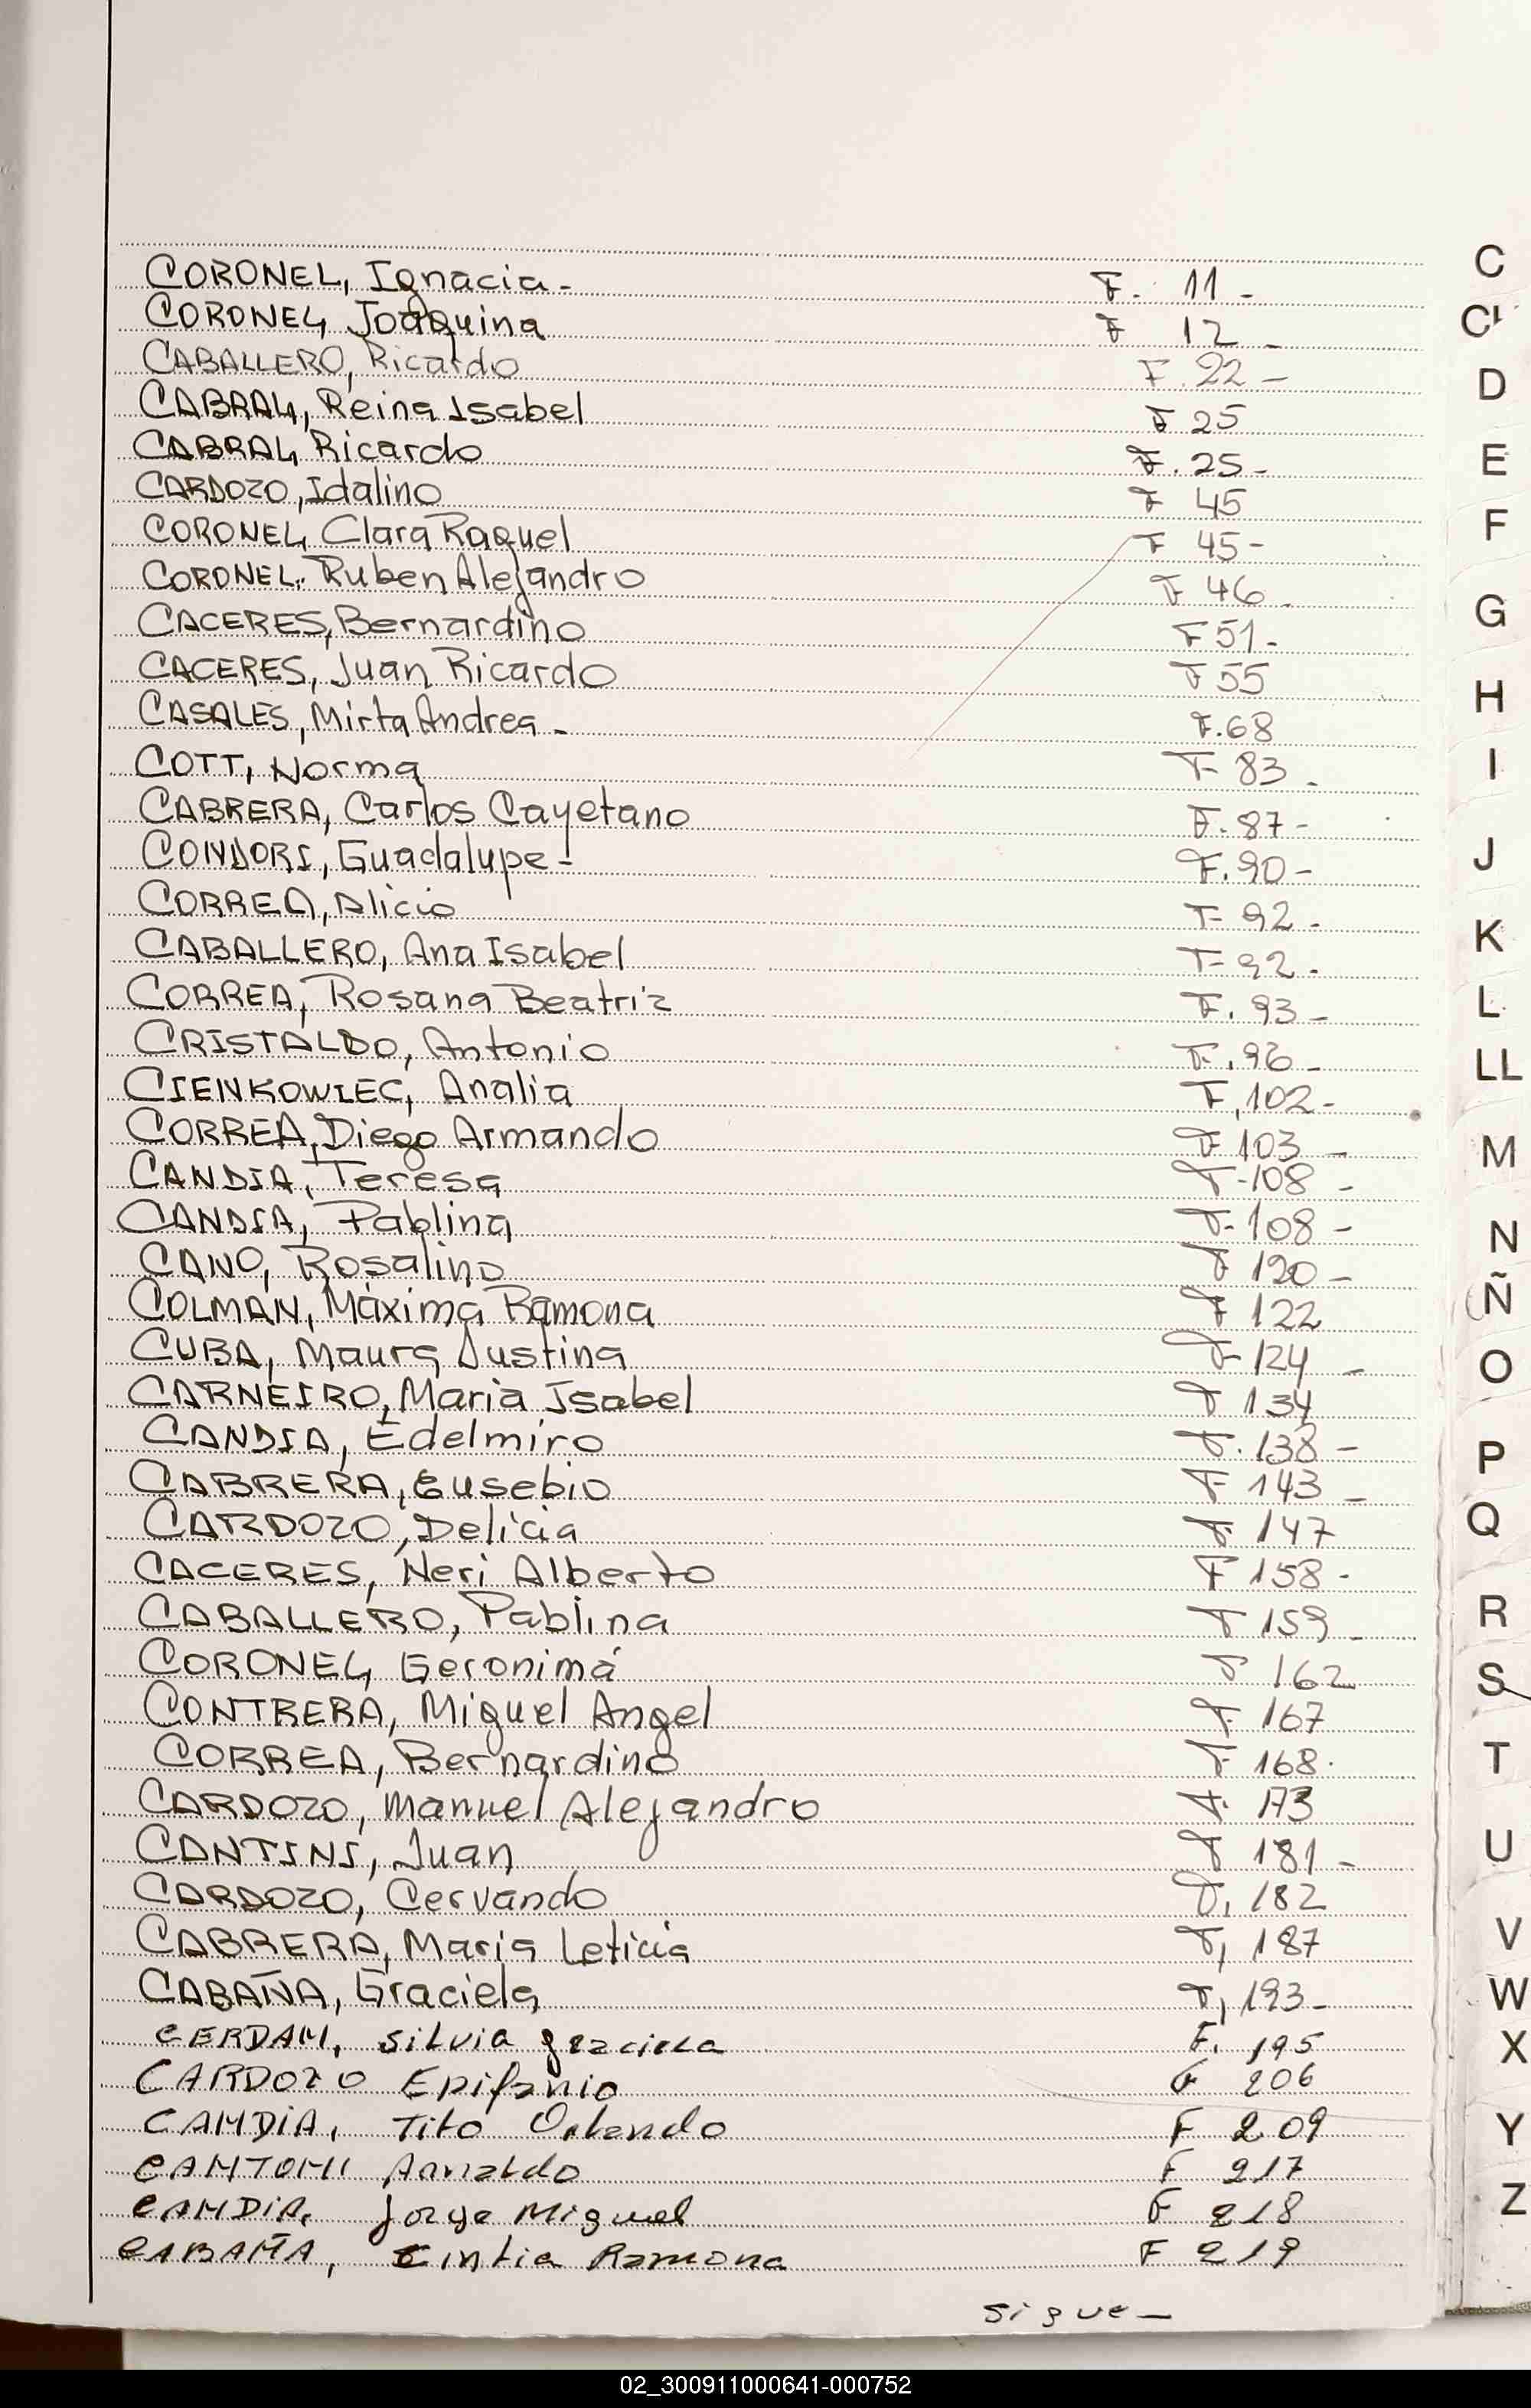 CORONEL, Ignacia - F. 11 -
CORONEL, Joaquina F 12 -
CABALLERO, Ricardo F. 22 -
CABRAL, Reina Isabel F 25
CABRAL, Ricardo F. 25 -
CARDOZO, Idalino F 45
CORONEL, Clara Raquel F 45 -
CORONEL, Ruben Alejandro F 46 -
CACERES, Bernardino F 51 -
CACERES, Juan Ricardo F 55
CASALES, Mirta Andrea - F. 68
COTT, Norma F 83 -
CABRERA, Carlos Cayetano F. 87 -
CONDORI, Guadalupe - F. 90 -
CORREA, Alicia F 92 -
CABALLERO, Ana Isabel F 92 -
CORREA, Rosana Beatriz F. 93 -
CRISTALDO, Antonio F. 96 -
CIENKOWIEC, Analia F, 102 -
CORREA, Diego Armando F 103 -
CANDIA, Teresa F - 108 -
CANDIA, Pablina F - 108 -
CANO, Rosalino F 120 -
COLMAN, Máxima Ramona F 122
CUBA, Maura Justina F 124 -
CARNEIRO, Maria Isabel F 134
CANDIA, Edelmiro F. 138 -
CABRERA, Eusebio F 143 -
CARDOZO, Delicia F. 147
CACERES, Neri Alberto F 158 -
CABALLERO, Pablina F 159 -
CORONEL, Geronima F 162
CONTRERA, Miguel Angel F. 167
CORREA, Bernardino F. 168.
CARDOZO, Manuel Alejandro F. 173
CANTINI, Juan F 181 -
CARDOZO, Cervando F, 182
CABRERA, Maria Leticia F, 187
CABAÑA, Graciela F, 193 -
CERDAN, Silvia graciela F. 195
CARDOZO Epifanio F 206
CANDIA, Tito Orlando F 209
CANTONI Arnaldo F 217
CANDIA, Jorge Miguel F 218
CABAÑA, Cintia Ramona F 219
sigue -
C
CH
D
E
F
G
H
I
J
K
L
LL
M
N
Ñ
O
P
Q
R
S
T
U
V
W
X
Y
Z
02_300911000641-000752